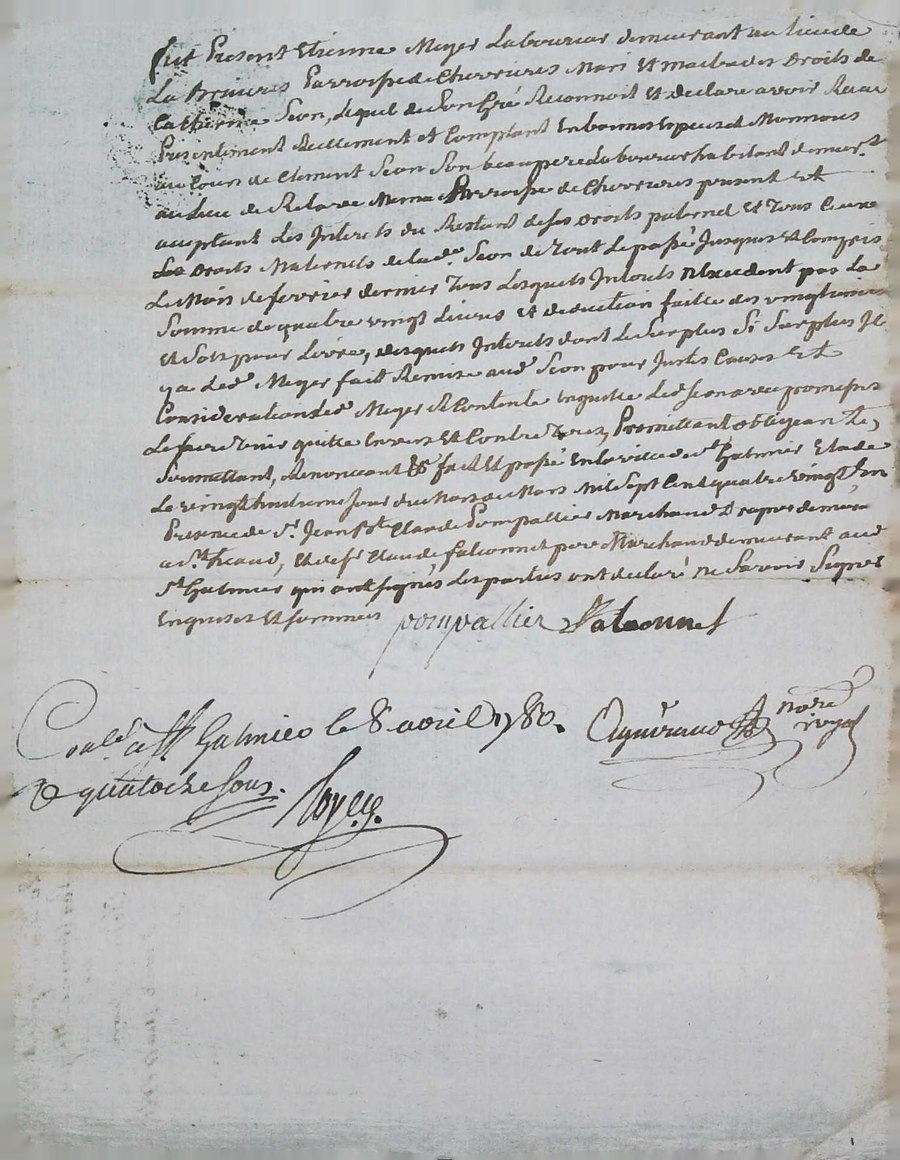 fut Présent Etienne Meyer Laboureur demeurant au lieu de
La Bruieres Parroisse de Chevrieres Mari Et maitre des Droits de
Catherine Seon, lequel de Son Gré Reconnoit Et declare avoir Recu
Presentement Reellement et Comptant En bonnes Espeuces de Monnoies
au Cours de Clement Seon Son beaupere Laboureur habitant demeurt
au Lieu de Mème Parroisse de Chevrieres présent Et
acceptant Les Interets du Restant de ses Droits paternel Et Tous Ceux
Les Droits Maternels de lade Seon de Tout Le passé Jusques Et Compris
Le Mois de fevrier dernier Tous Lesquels Interets N'Excedent pas La
Somme de quatre vingt Livres Et deduction faitte des vingtiemes
Et Sols pour Livre, desquels Interets dont Le Surplus Si Surplus Il
ya Led Meyer fait Remise aud Seon pour Justes Causes Et
Considerations Led Meyer Contente Enquitte Led Seon avec promesse
Le faire Tenir quitte Envers Et Contre Tous, Promettant obligeant &
Soumettant, Renonceant & fait Et passé En la ville de St Galmier Etude
Le vingthuitieme Jour du Mois de Mars Mil Sept Cent quatre vingt En
Presence de Sr. Jean Bte Claude Pompallier Marchand Drapier demeurt
a St. Et de Sr Claude falconnet pere Marchand demeurant aud
St Galmier qui ont signés Les parties ont declaré ne Savoir Signer
Enquises Et sommées pompallier Falconnet
Conlé. a St Galmier le 8 avril 1780. nore
R quatorze sous. royal